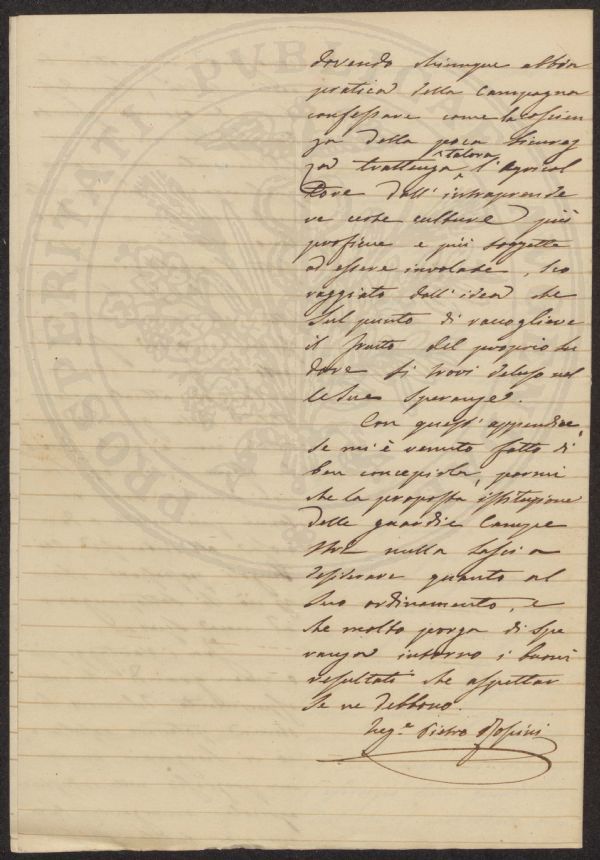 PROSPERITATI PVBLICAE
dovendo chiunque abbia
pratica della Campagna
confessare come la coscien
za della poca sicurez
za trattenga talora l'Agricol
tore dall'intraprende
re certe culture più
proficue e più soggette
ad essere involate,
raggiato dall'idea che
sul punto di raccogliere
il frutto del proprio su
dore si trovi deluso nel
le sue speranze.
Con quest'appendice,
se mi è venuto fatto di
ben concepirla, parmi
che la proposta istituzione
delle guardie Campe
stri nulla lascia a
desiderare quanto al
suo ordinamento, e
che molto porga di spe
ranza intorno i buoni
resultati che aspettar
se ne debbono.
Pietro Rossini